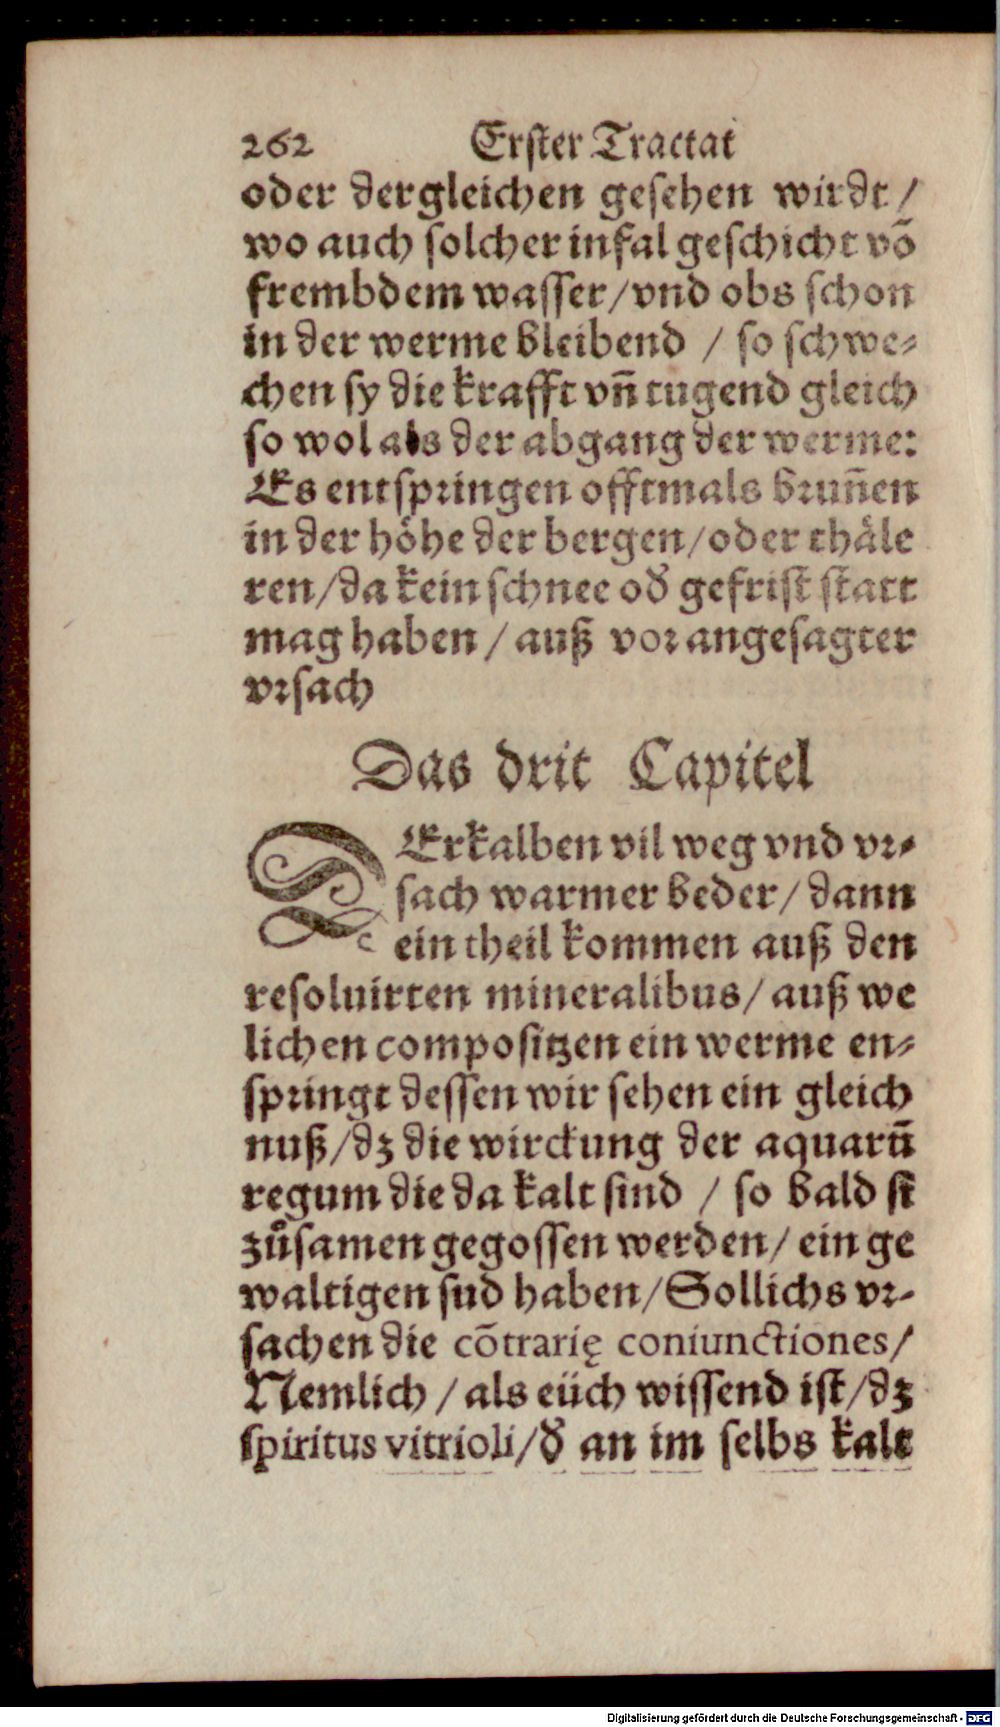 262 Erster Tractat
oder dergleichen gesehen wirdt /
wo auch solcher infal geschicht võ
frembdem wasser / vnd obs schon
in der werme bleibend / so schwe-
chen sy die krafft vñ tugend gleich
so wol als der abgang der werme:
Es entspringen offtmals bruñen
in der höhe der bergen / oder thäle
ren / da kein schnee od̃ gefrist statt
mag haben / auß vor angesagter
vrsach
Das drit Capitel
ERkalben vil weg vnd vr-
sach warmer beder / dann
ein theil kommen auß den
resoluirten mineralibus / auß we
lichen compositzen ein werme en-
springt dessen wir sehen ein gleich
nuß / dz die wirckung der aquarũ
regum die da kalt sind / so bald si
zůsamen gegossen werden / ein ge
waltigen sud haben / Sollichs vr-
sachen die cõtrarię coniunctiones /
Nemlich / als eüch wissend ist / dz
spiritus vitrioli / d̃ an im selbs kalt
Digitalisierung gefördert durch die Deutsche Forschungsgemeinschaft - DFG